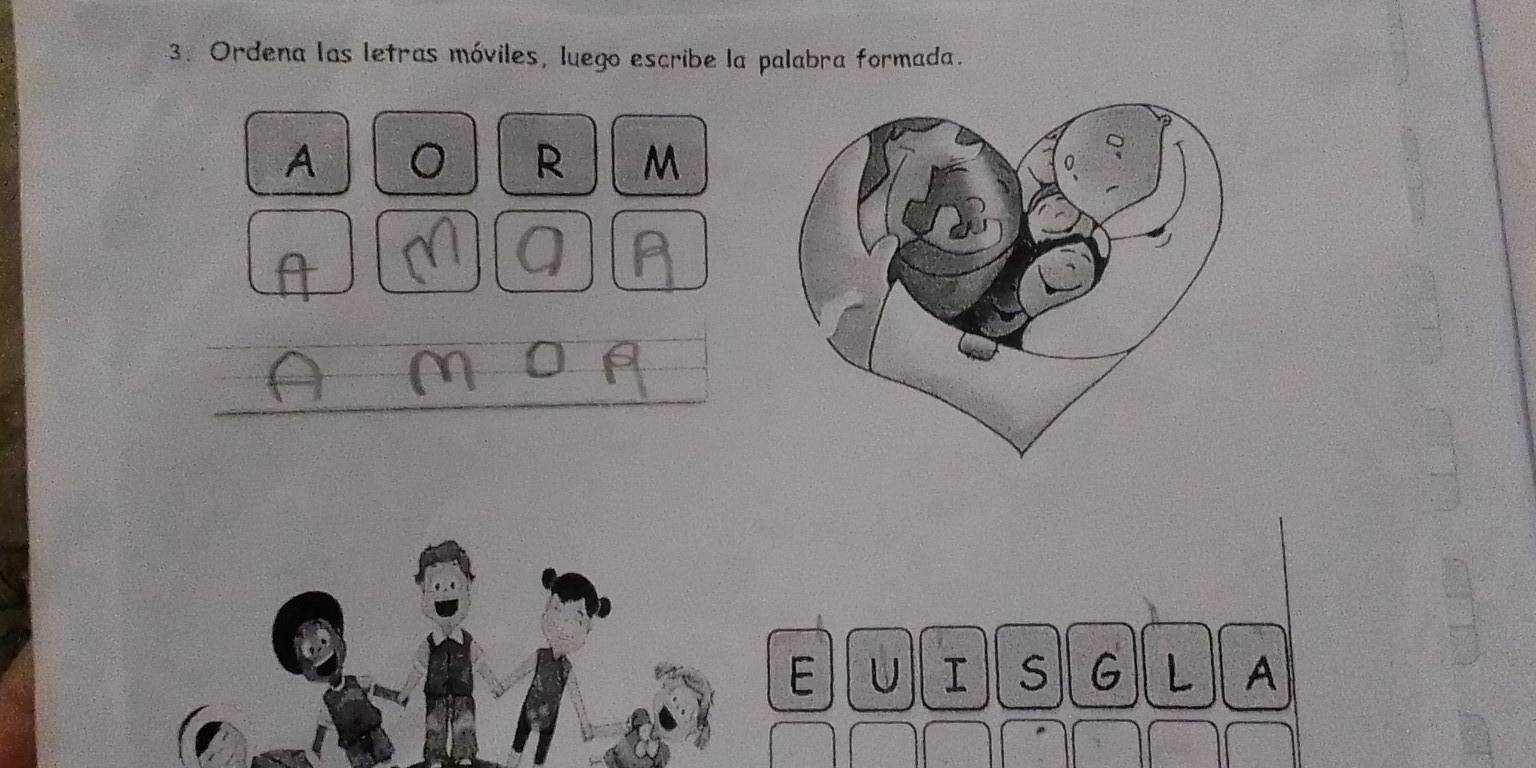 3. Ordena las letras móviles, luego escribe la palabra formada.
A O R M
A M O R
A M O R
E U I S G L A